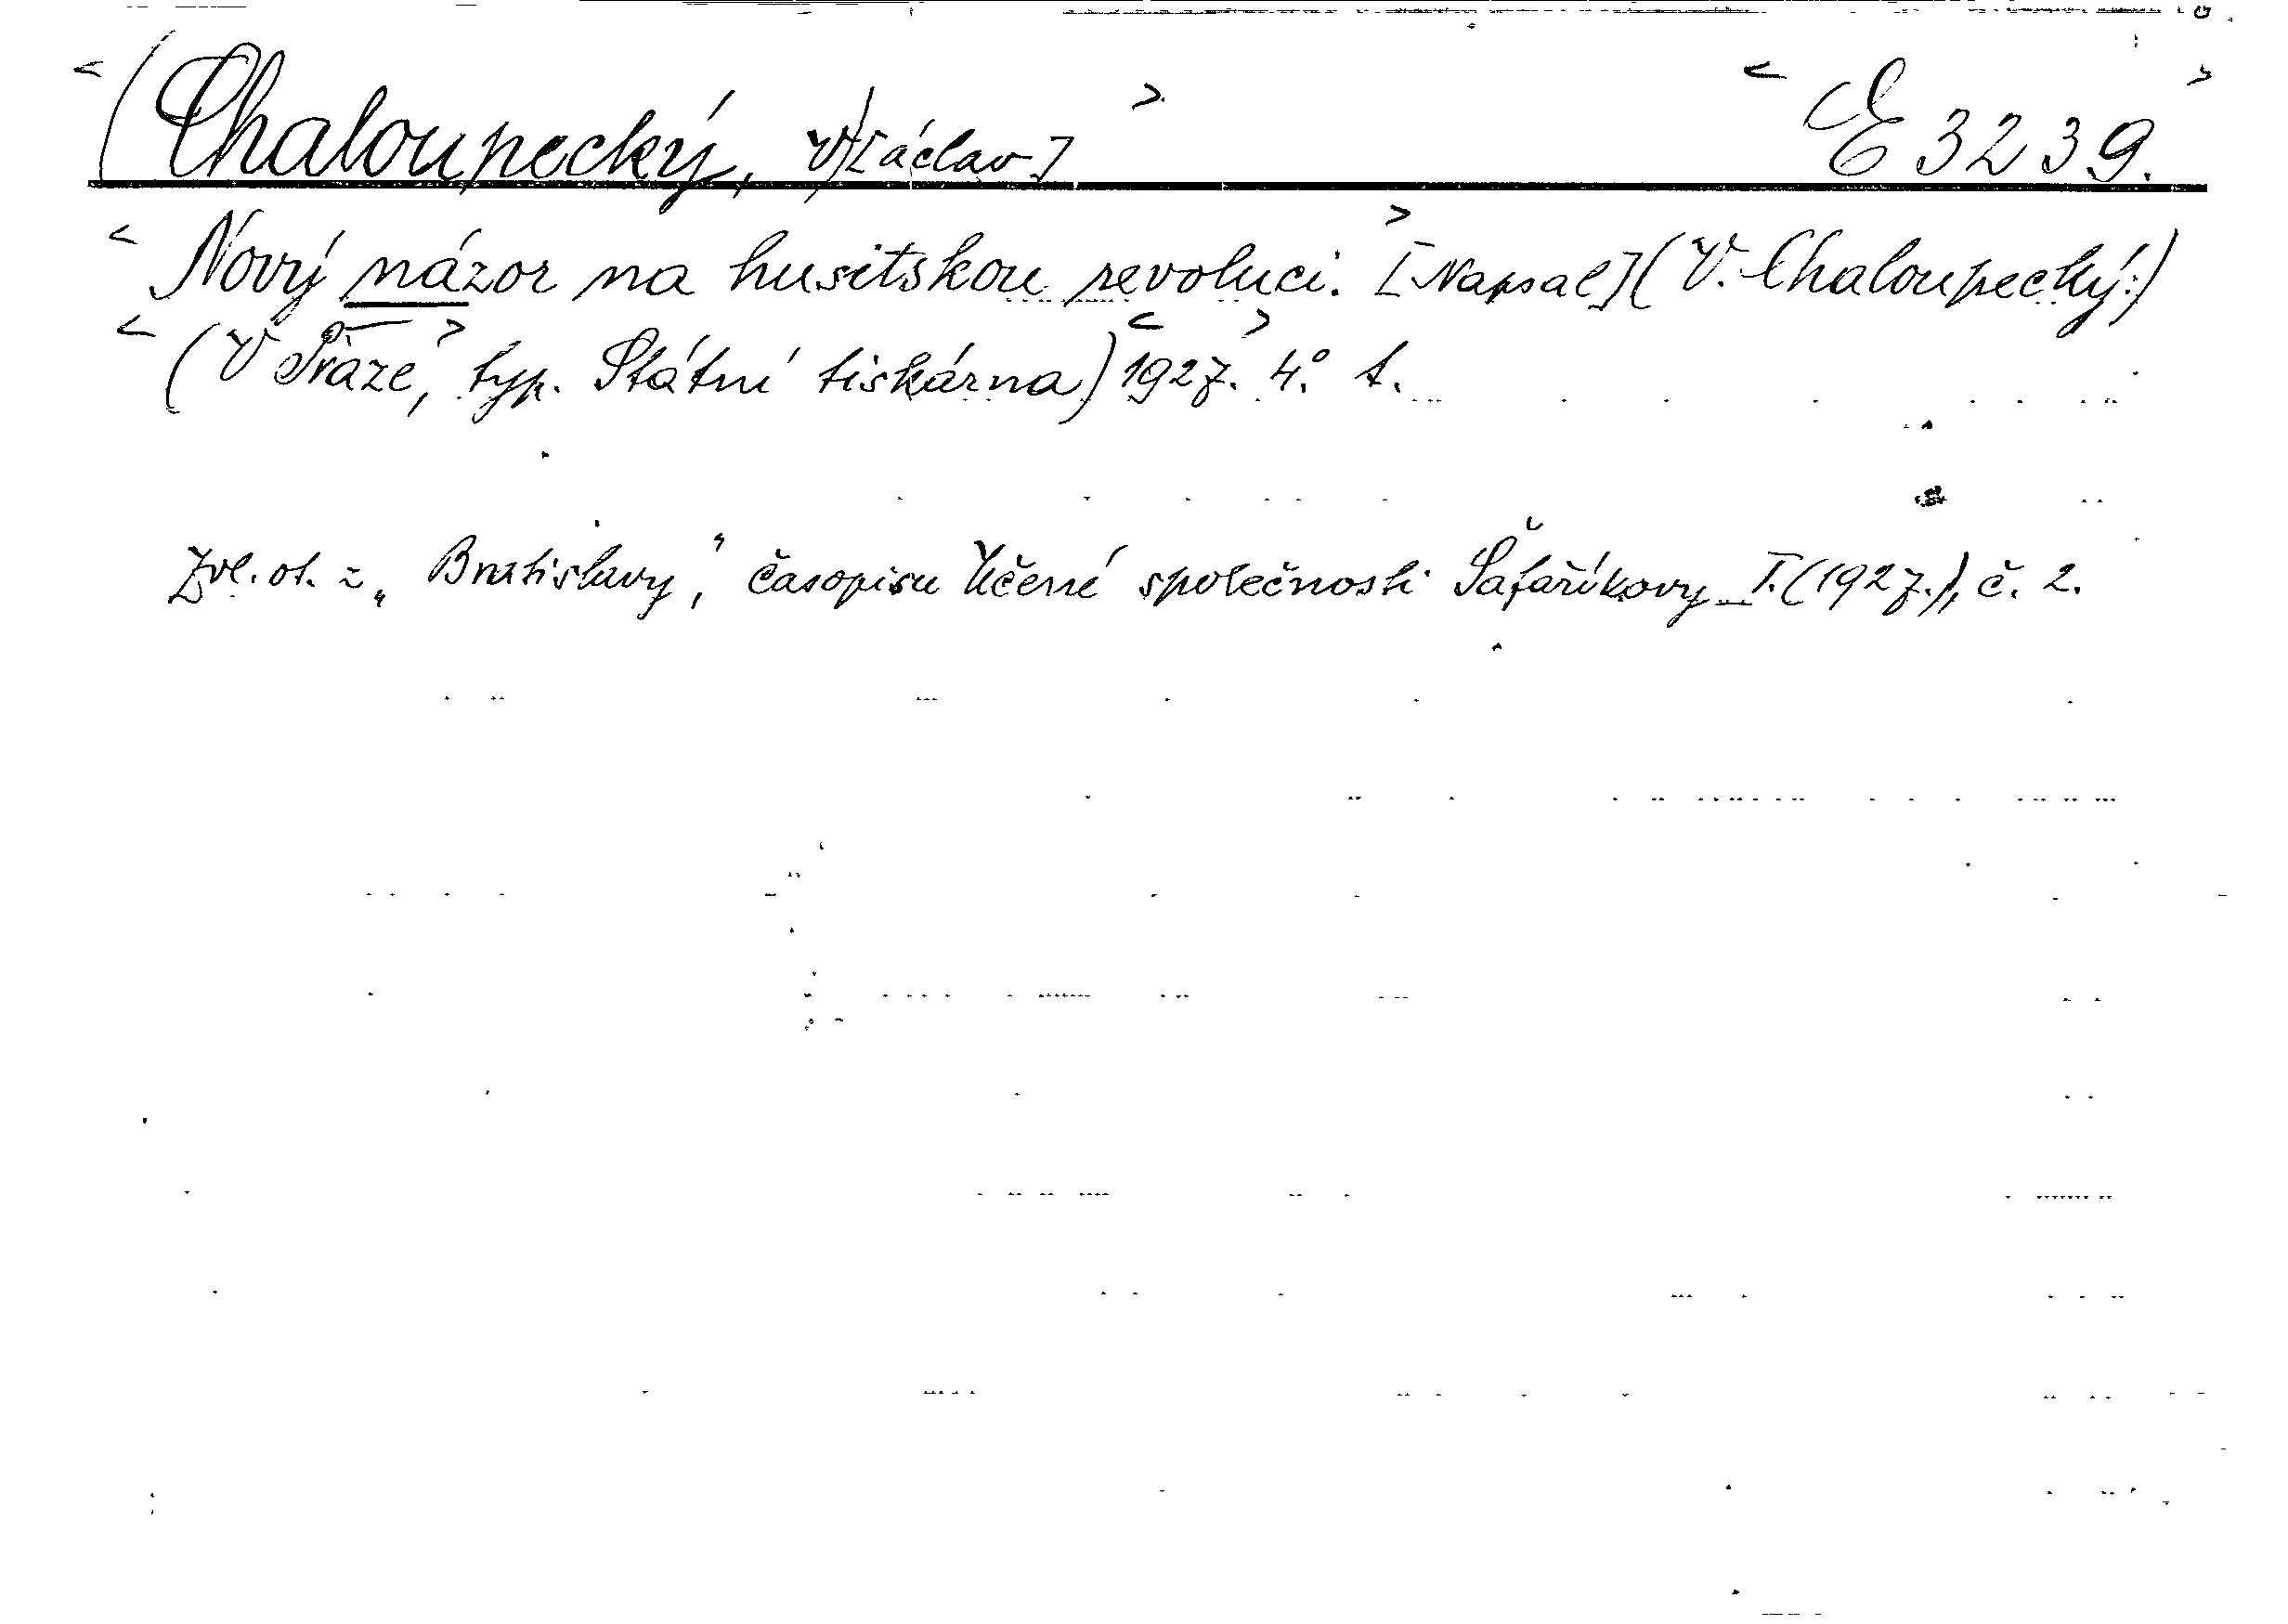 <(Chaloupecký, V)[áclav]> <E 3239.>
<Nový názor na husitskou revoluci.> [Napsal] (V. Chaloupecký:)
<(V Praze,> typ. Státní tiskárna) <1927.> 4.° 1.
Zvl. ot. z „Bratislavy,“ časopisu Učené společnosti Šafaříkovy I. (1927.), č. 2.